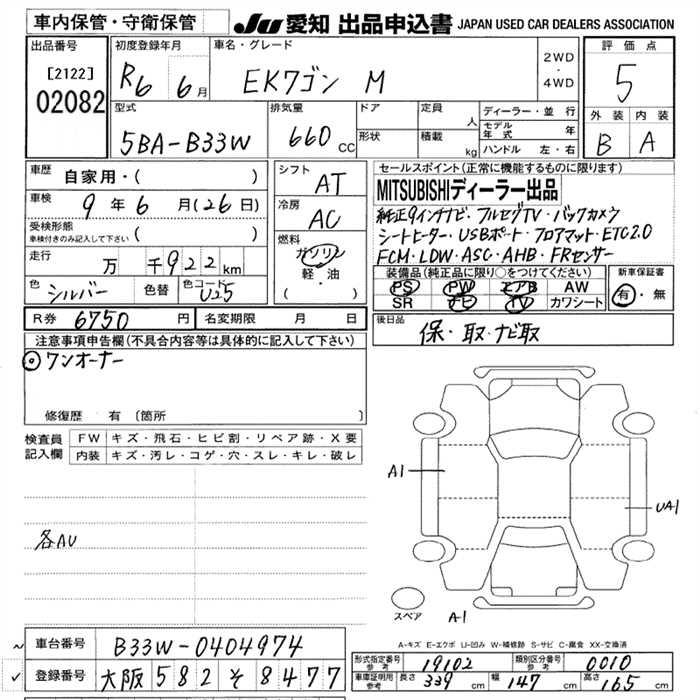 車内保管・守衛保管
JU 愛知 出品申込書 JAPAN USED CAR DEALERS ASSOCIATION
出品番号
[2122]
02082
初度登録年月
R6 6月
車名・グレード
EKワゴン M
2WD
・
4WD
評価点
5
外装 内装
B A
型式
5BA-B33W
排気量
660 CC
ドア
形状
定員 人
積載 kg
ディーラー・並行
モデル年式 年
ハンドル 左・右
車歴 自家用・( )
車検 9年6月(26日)
受検形態
車検付きのみ記入して下さい ( )
走行 万 千922km
色 シルバー 色替 色コード U25
シフト
AT
冷房
AC
燃料
ガソリン
軽・油
( )
セールスポイント(正常に機能するものに限ります)
MITSUBISHIディーラー出品
純正9インチナビ・フルセグTV・バックカメラ
シートヒーター・USBポート・フロアマット・ETC2.0
FCM・LDW・ASC・AHB・FRセンサー
装備品(純正品に限り○をつけてください)
PS PW エアB AW
SR ナビ TV カワシート
新車保証書
有・無
R券 6750円 名変期限 月 日
後日品
保・取・ナビ取
注意事項申告欄(不具合内容等は具体的に記入して下さい)
◎ワンオーナー
修復歴 有 〔箇所
検査員記入欄
FW キズ・飛石・ヒビ割・リペア跡・X要
内装 キズ・汚レ・コゲ・穴・スレ・キレ・破レ
各AU
A1
UA1
スペア
A-1
A-キズ E-エクボ U-凹み W-補修跡 S-サビ C-腐食 XX-交換済
~ 車台番号 B33W-0404974
✓ 登録番号 大阪 582 そ 8477
形式指定番号 参考 19102 類別区分番号 参考 0010
車庫証明用 参考 長さ 339 幅 147 高さ 165 cm